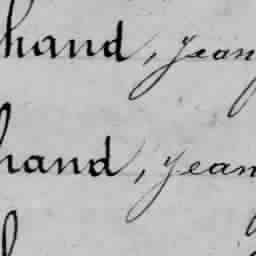 hand, Jean
hand, Jean